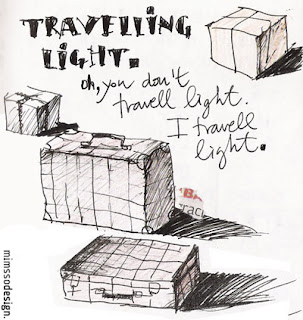 TRAVELLING
LIGHT.
oh, you don't
travell light.
I travell
light.
mumssodesign.